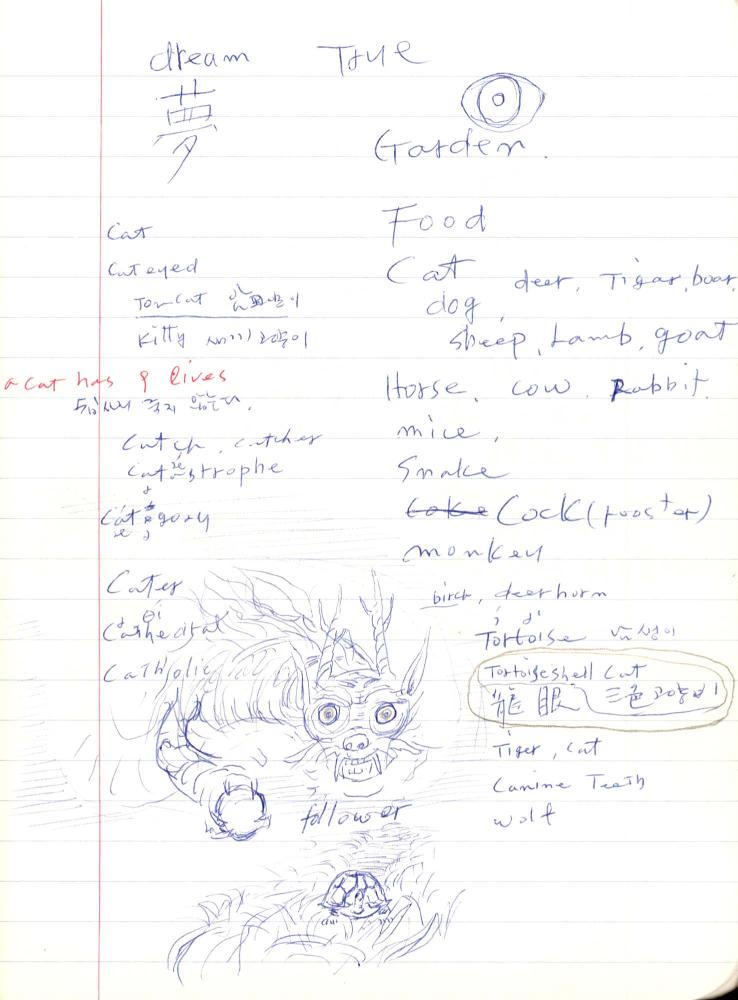 dream True
夢
Garden.
Cat
Cat eyed
Tom cat
Kitty 새끼고양이
a cat has 9 lives
쉽사리 죽지 않는다.
Catch, catcher
Catastrophe
Category
Cater
Cathedral
Catholic
Food
Cat deer, Tiger, boar,
dog,
sheep, Lamb, goat
Horse, cow, Rabbit.
mice,
Snake
Cock (rooster)
monkey
birch, deer horn
Tortoise
Tortoiseshell Cat
龍眼 三色고양이
Tiger, cat
Canine Teeth
wolf
follower